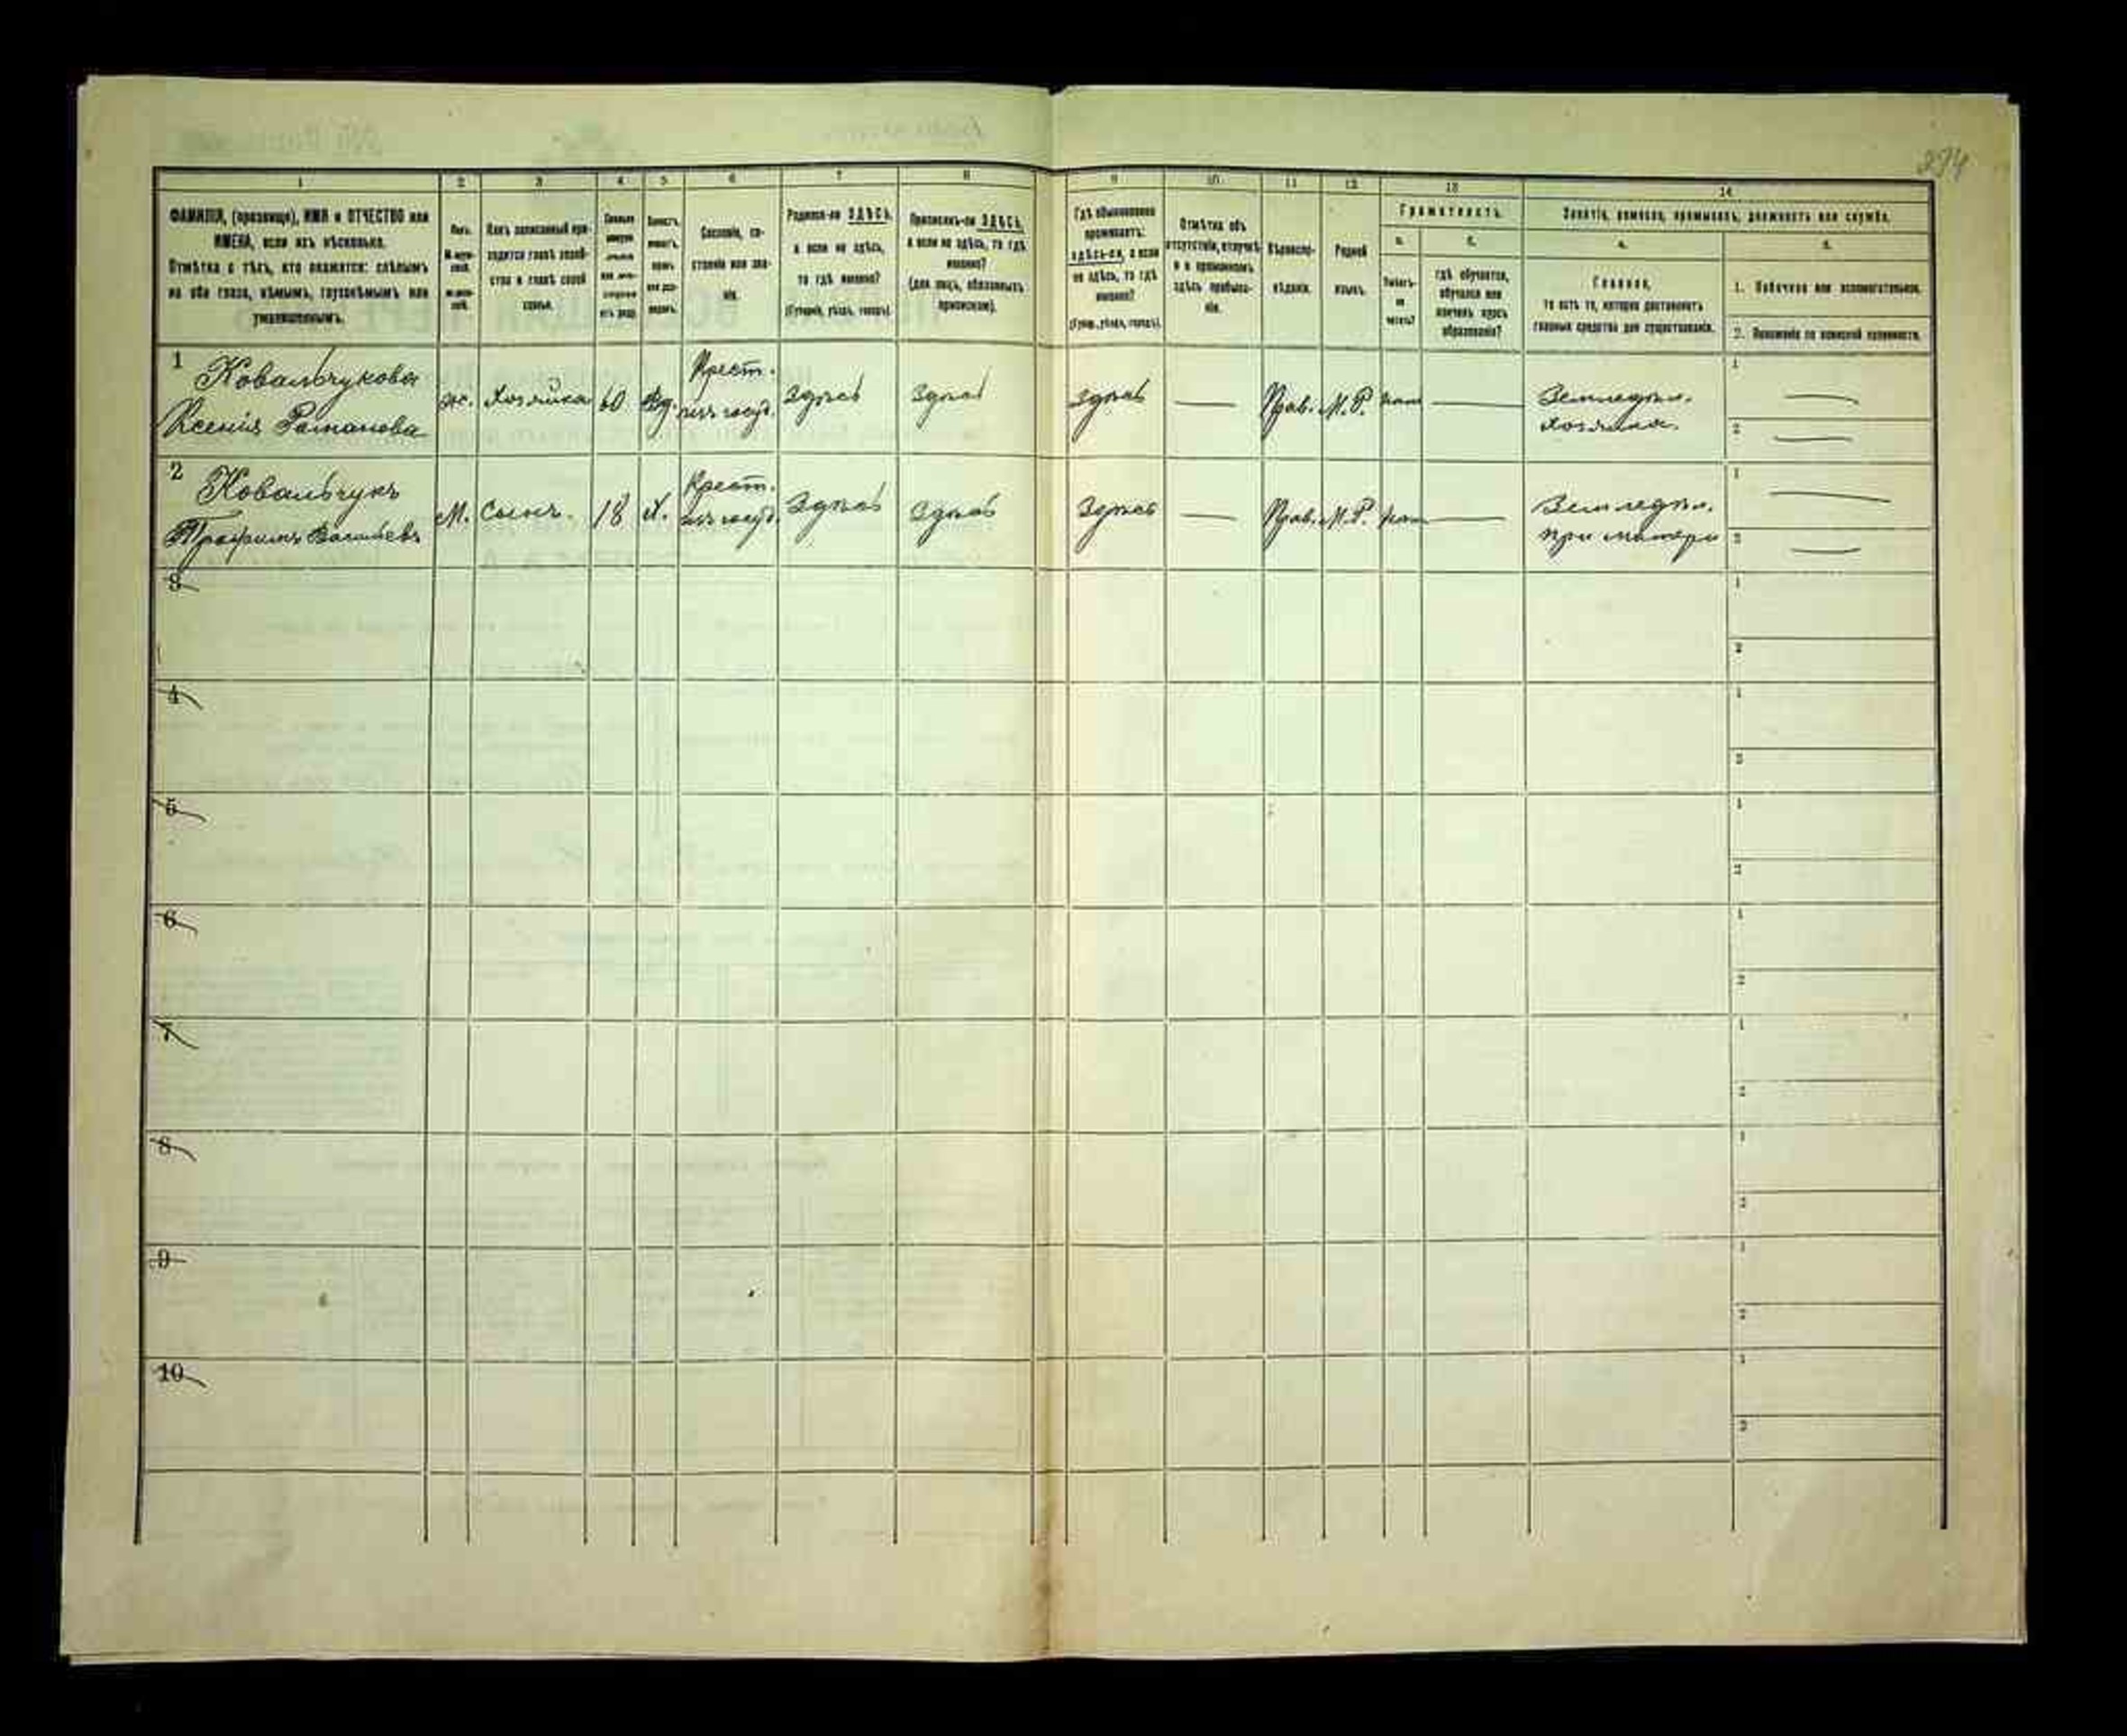 274
1 2 3 4 5 6 7 8 9 10 11 12 13 14
ФАМИЛІЯ, (прозвище), ИМЯ и ОТЧЕСТВО или
ИМЕНА, если ихъ нѣсколько.
Отмѣтка о тѣхъ, кто окажется: слѣпымъ
на оба глаза, нѣмымъ, глухонѣмымъ или
умалишеннымъ.
Полъ.
Какъ записанный при-
ходится главѣ хозяй-
ства и главѣ своей
семьи.
Сословіе, со-
стояніе или зва-
ніе.
Родился-ли ЗДѢСЬ,
а если не здѣсь,
то гдѣ именно?
(Губернія, уѣздъ, городъ).
Приписанъ-ли ЗДѢСЬ,
а если не здѣсь, то гдѣ
именно?
(для лицъ, обязанныхъ
припиской).
Гдѣ обыкновенно
проживаетъ:
здѣсь-ли, а если
не здѣсь, то гдѣ
именно?
(Губер., уѣздъ, городъ).
Отмѣтка объ
отсутствіи, отлучкѣ
и о временномъ
здѣсь пребыва-
ніи.
Вѣроиспо-
вѣданіе.
Родной
языкъ.
Грамотность.
а.
Умѣетъ-
ли
читать?
б.
гдѣ обучается,
обучался или
кончилъ курсъ
образованія?
Занятіе, ремесло, промыселъ, должность или служба.
а.
Главное,
то есть то, которое доставляетъ
главныя средства для существованія.
б.
1. Побочное или вспомогательное.
2. Положеніе по воинской повинности.
1 Ковальчукова
Ксенія Романова
ж. Хозяйка 60 Вд. Крест.
изъ госуд. Здѣсь Здѣсь Здѣсь — Прав. М.Р. нѣт — Земледѣл.
хозяйка.
1 —
2 —
2 Ковальчукъ
Трофимъ Васильевъ
М. Сынъ. 18 Х. Крест.
изъ госуд. Здѣсь Здѣсь Здѣсь — Прав. М.Р. нѣт — Земледѣл.
при матери
1 —
2 —
3
1
2
4
1
2
5
1
2
6
1
2
7
1
2
8
1
2
9
1
2
10
1
2